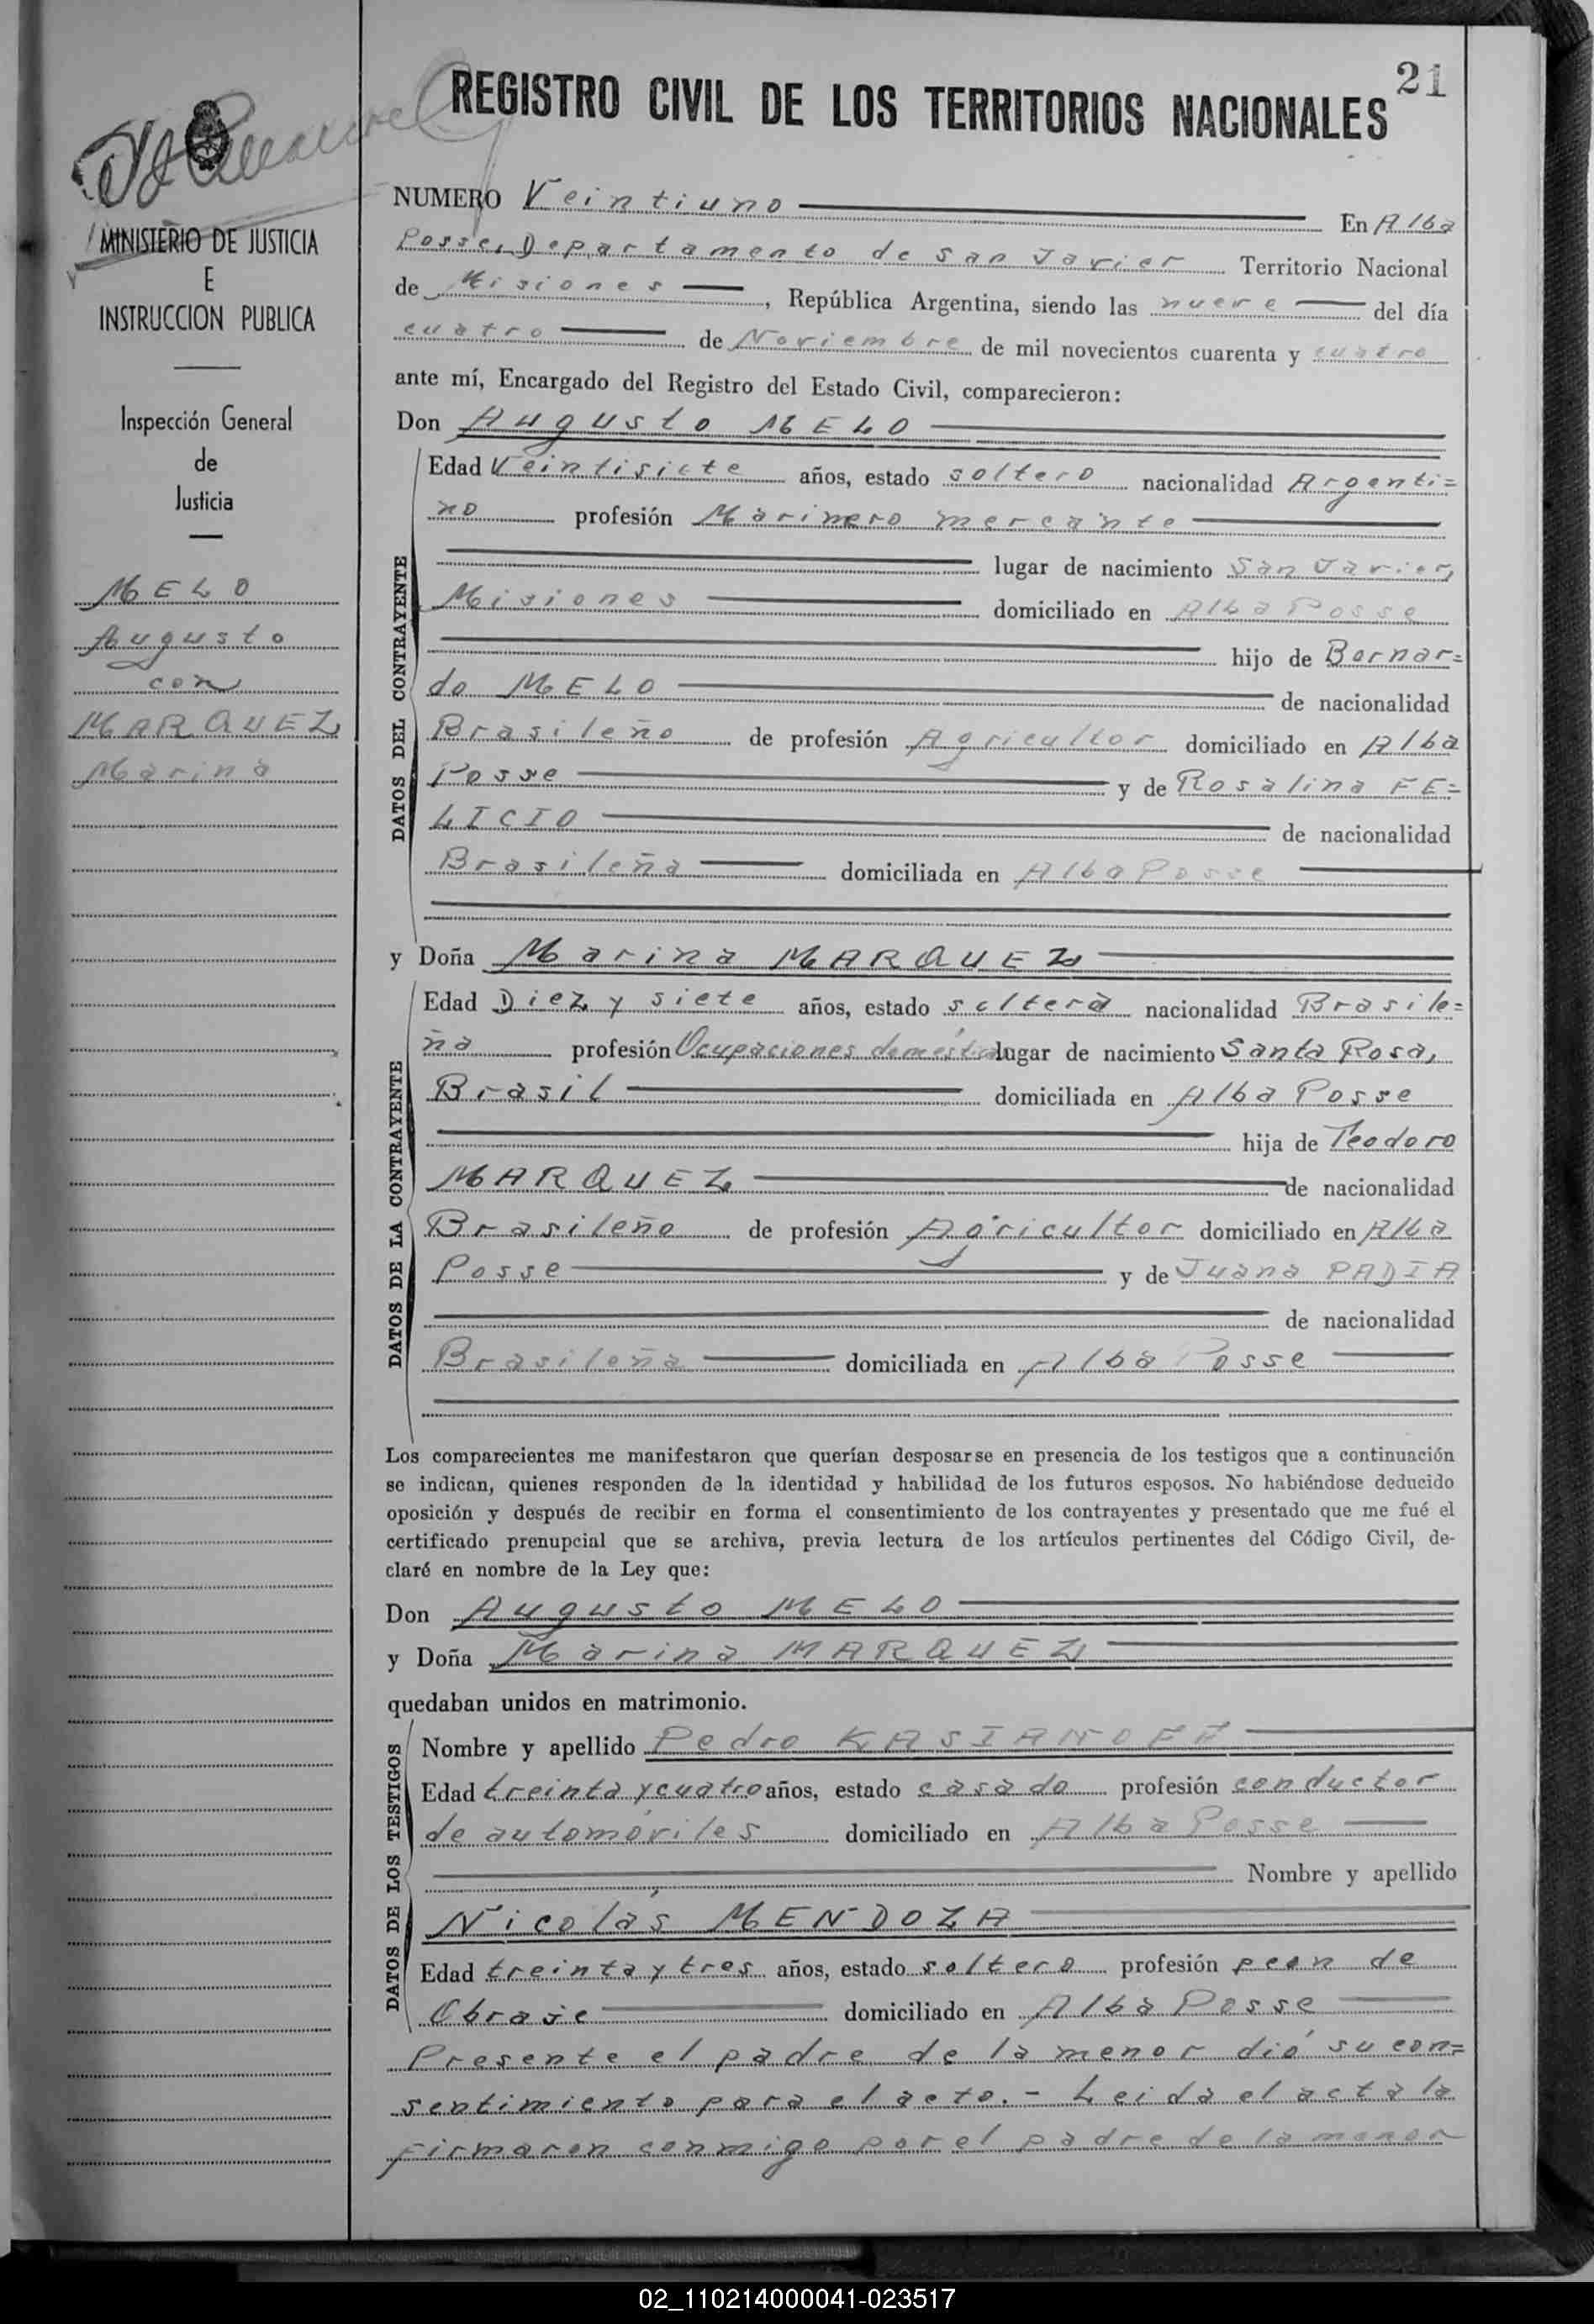 21
REGISTRO CIVIL DE LOS TERRITORIOS NACIONALES
MINISTERIO DE JUSTICIA
E
INSTRUCCION PUBLICA
Inspección General
de
Justicia
MELO
Augusto
con
MARQUEZ
Marina
NUMERO Veintiuno En Alba
Posse, Departamento de San Javier Territorio Nacional
de Misiones, República Argentina, siendo las nueve del día
cuatro de Noviembre de mil novecientos cuarenta y cuatro
ante mí, Encargado del Registro del Estado Civil, comparecieron:
Don Augusto MELO
DATOS DEL CONTRAYENTE
Edad Veintisiete años, estado soltero nacionalidad Argenti=
no profesión Marinero mercante
lugar de nacimiento San Javier,
Misiones domiciliado en Alba Posse
hijo de Bernar=
do MELO de nacionalidad
Brasileño de profesión Agricultor domiciliado en Alba
Posse y de Rosalina FE=
LICIO de nacionalidad
Brasileña domiciliada en Alba Posse
y Doña Marina MARQUEZ
DATOS DE LA CONTRAYENTE
Edad Diez y siete años, estado soltera nacionalidad Brasile=
ña profesión Ocupaciones domésticas lugar de nacimiento Santa Rosa,
Brasil domiciliada en Alba Posse
hija de Teodoro
MARQUEZ de nacionalidad
Brasileño de profesión Agricultor domiciliado en Alba
Posse y de Juana PADIA
de nacionalidad
Brasileña domiciliada en Alba Posse
Los comparecientes me manifestaron que querían desposarse en presencia de los testigos que a continuación
se indican, quienes responden de la identidad y habilidad de los futuros esposos. No habiéndose deducido
oposición y después de recibir en forma el consentimiento de los contrayentes y presentado que me fué el
certificado prenupcial que se archiva, previa lectura de los artículos pertinentes del Código Civil, de-
claré en nombre de la Ley que:
Don Augusto MELO
y Doña Marina MARQUEZ
quedaban unidos en matrimonio.
DATOS DE LOS TESTIGOS
Nombre y apellido Pedro KASIANOFF
Edad treinta y cuatro años, estado casado profesión conductor
de automóviles domiciliado en Alba Posse
Nombre y apellido
Nicolás MENDOZA
Edad treinta y tres años, estado soltero profesión peon de
Obraje domiciliado en Alba Posse
Presente el padre de la menor dió su con=
sentimiento para el acto. - Leida el acta la
firmaron conmigo por el padre de la menor
02_110214000041-023517